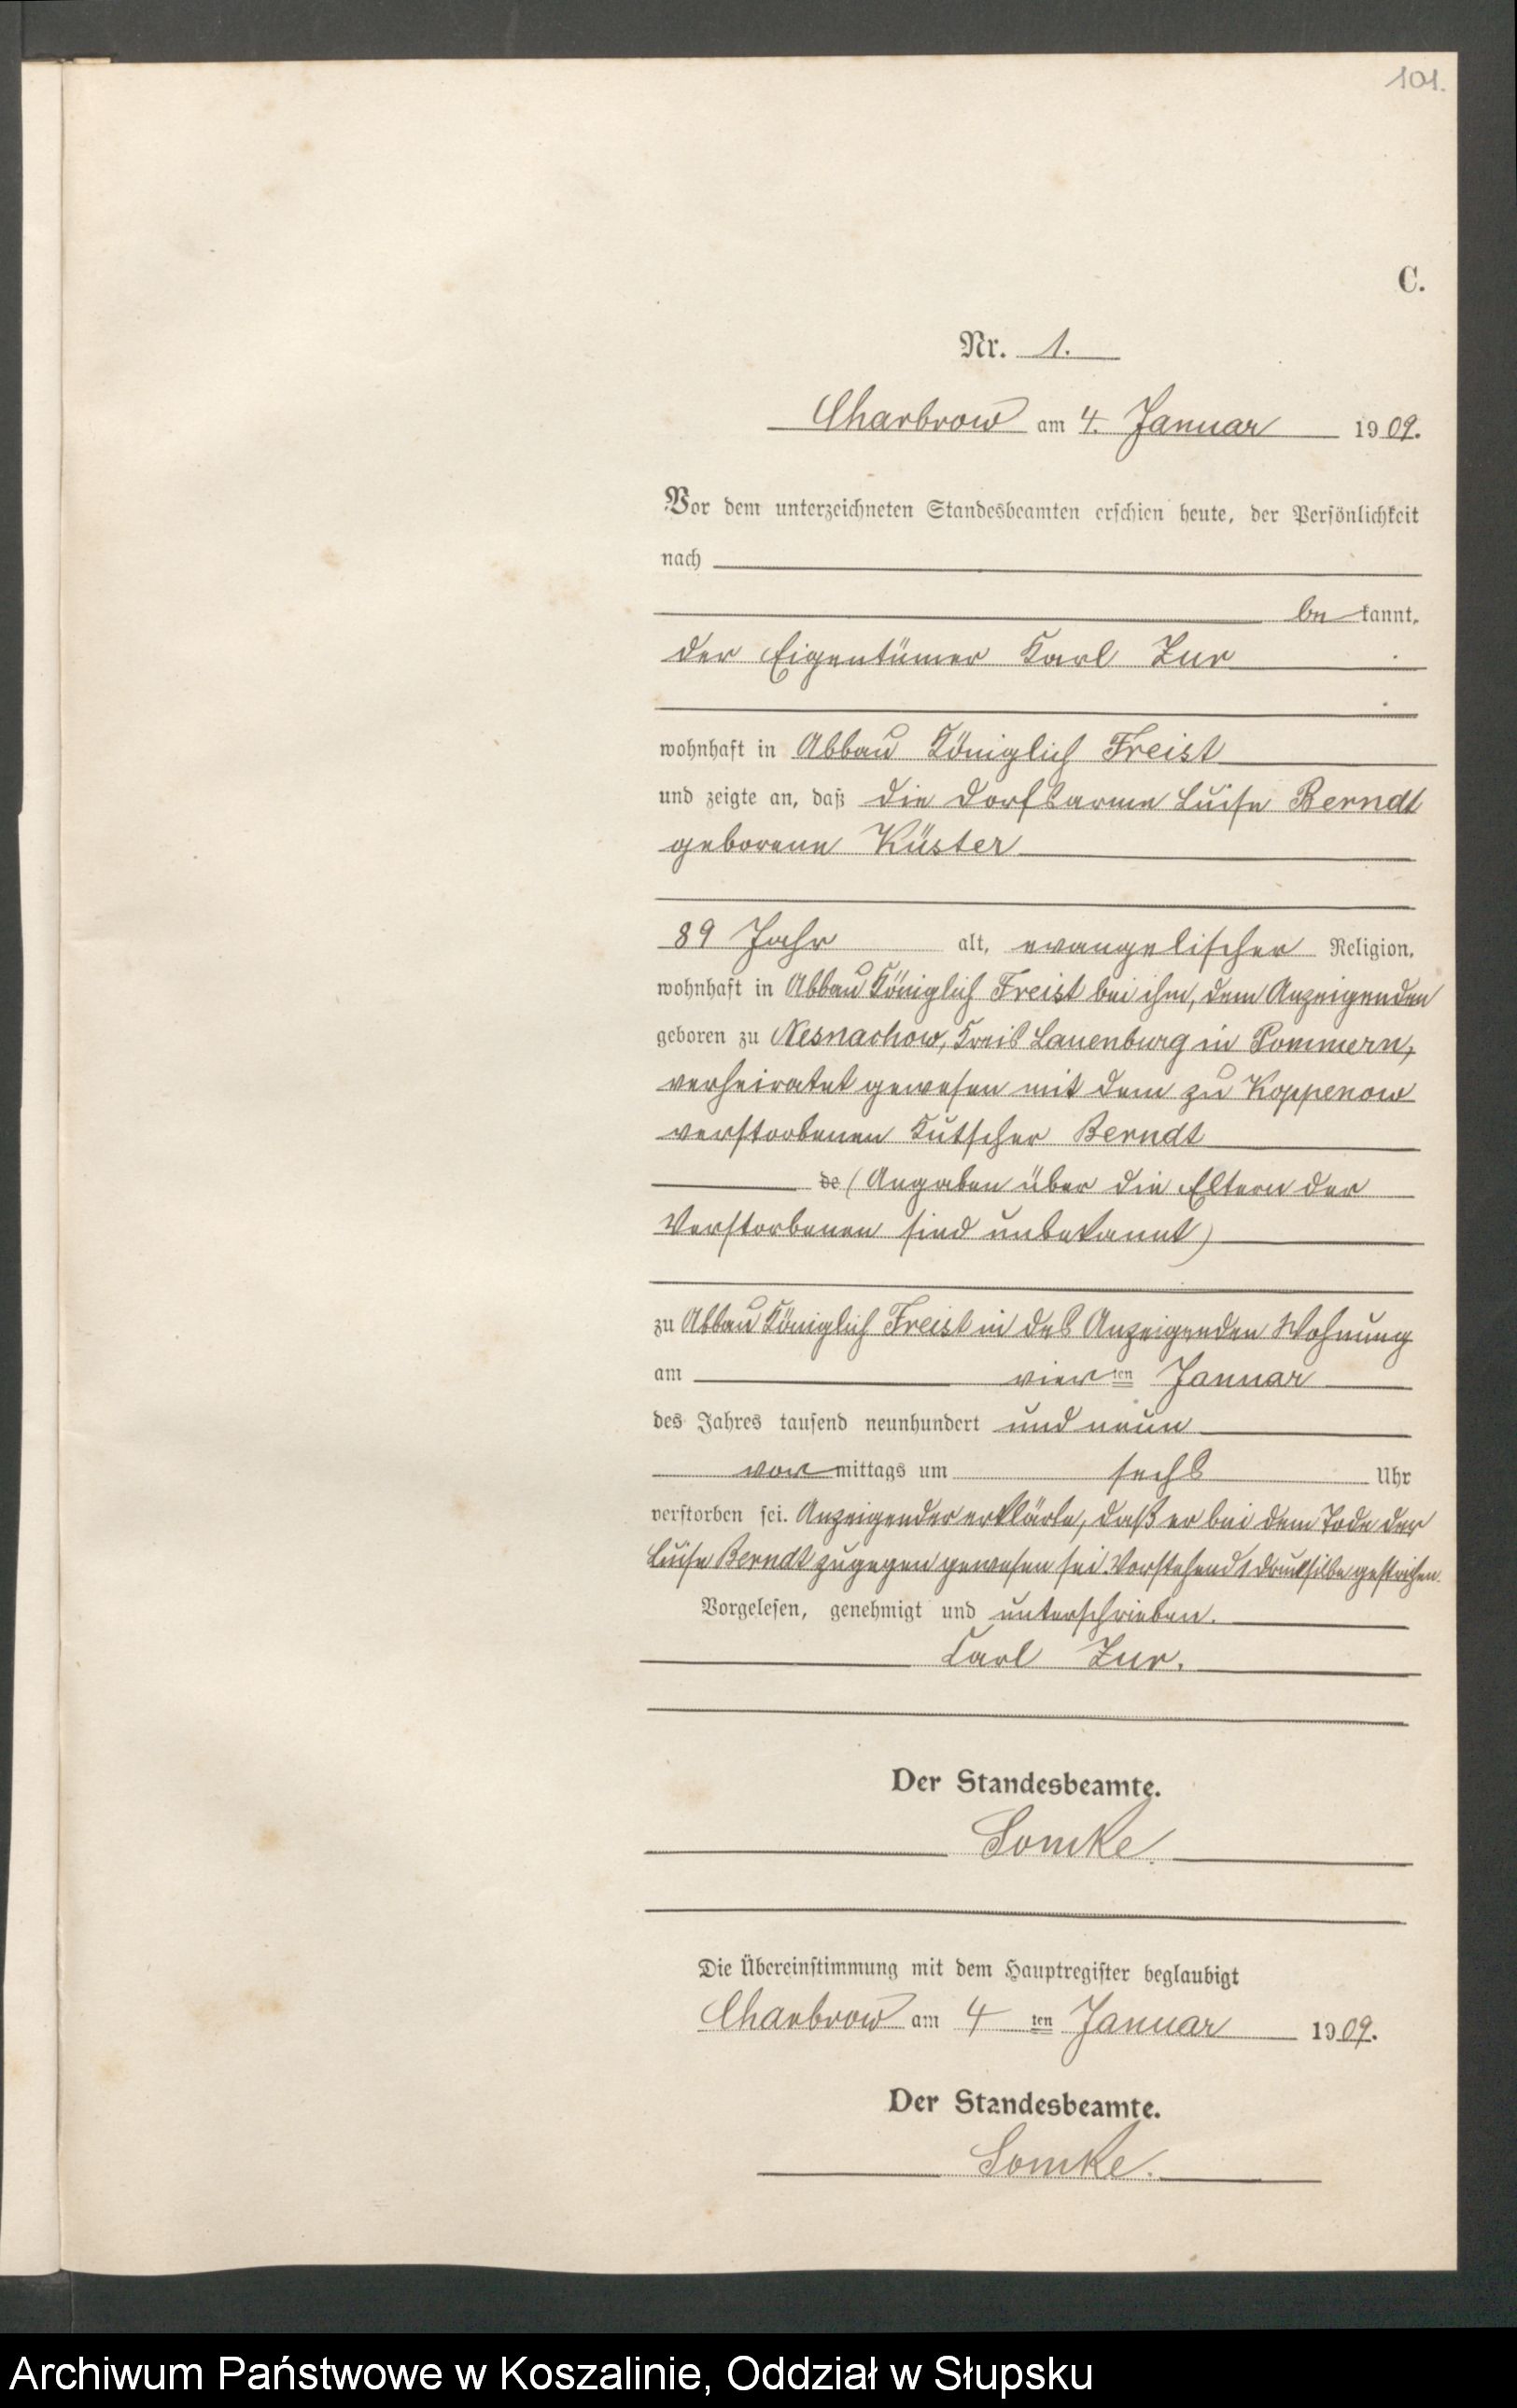 101.
C.
Nr. 1.
Charbrow am 4. Januar 1909.
Vor dem unterzeichneten Standesbeamten erschien heute, der Persönlichkeit
nach
be kannt,
der Eigentümer Karl Zur
wohnhaft in Abbau Königlich Freist
und zeigte an, daß die Dorfsarme Luise Berndt
geborene Küster
89 Jahr alt, evangelischer Religion,
wohnhaft in Abbau Königlich Freist bei ihm, dem Anzeigenden
geboren zu Nesnachow, Kreis Lauenburg in Pommern,
verheiratet gewesen mit dem zu Koppenow
verstorbenen Kutscher Berndt
de (Angaben über die Eltern der
Verstorbenen sind unbekannt)
zu Abbau Königlich Freist in des Anzeigenden Wohnung
am vier ten Januar
des Jahres tausend neunhundert und neun
vor mittags um sechs Uhr
verstorben sei. Anzeigender erklärte, daß er bei dem Tode der
Luise Berndt zugegen gewesen sei. Vorstehend 1 Drucksilbe gestrichen.
Vorgelesen, genehmigt und unterschrieben.
Carl Zur.
Der Standesbeamte.
Somke.
Die Übereinstimmung mit dem Hauptregister beglaubigt
Charbrow am 4 ten Januar 1909.
Der Standesbeamte.
Somke.
Archiwum Państwowe w Koszalinie, Oddział w Słupsku